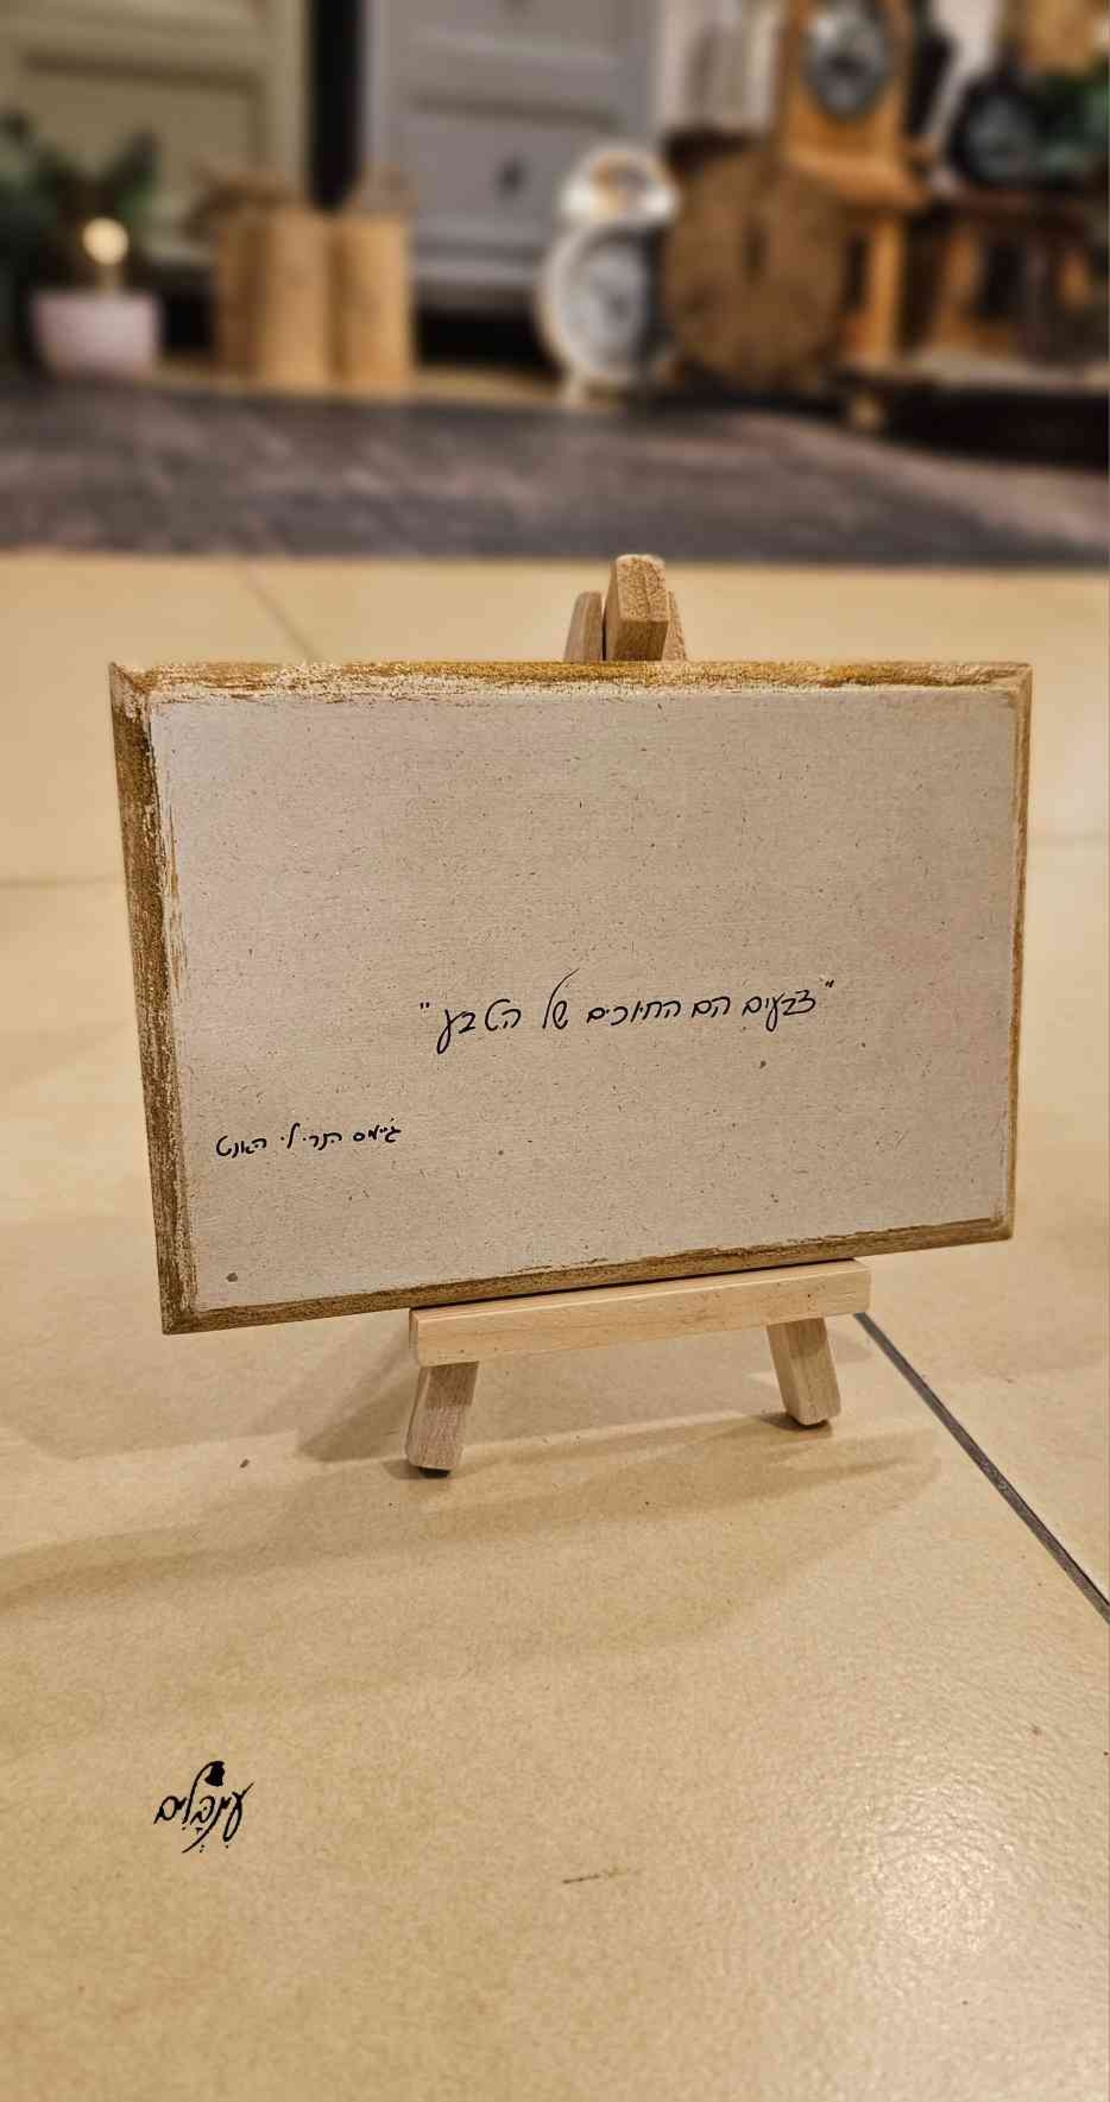 "צבעים הם החיוכים של הטבע"
ג'יימס הנרי לי האנט